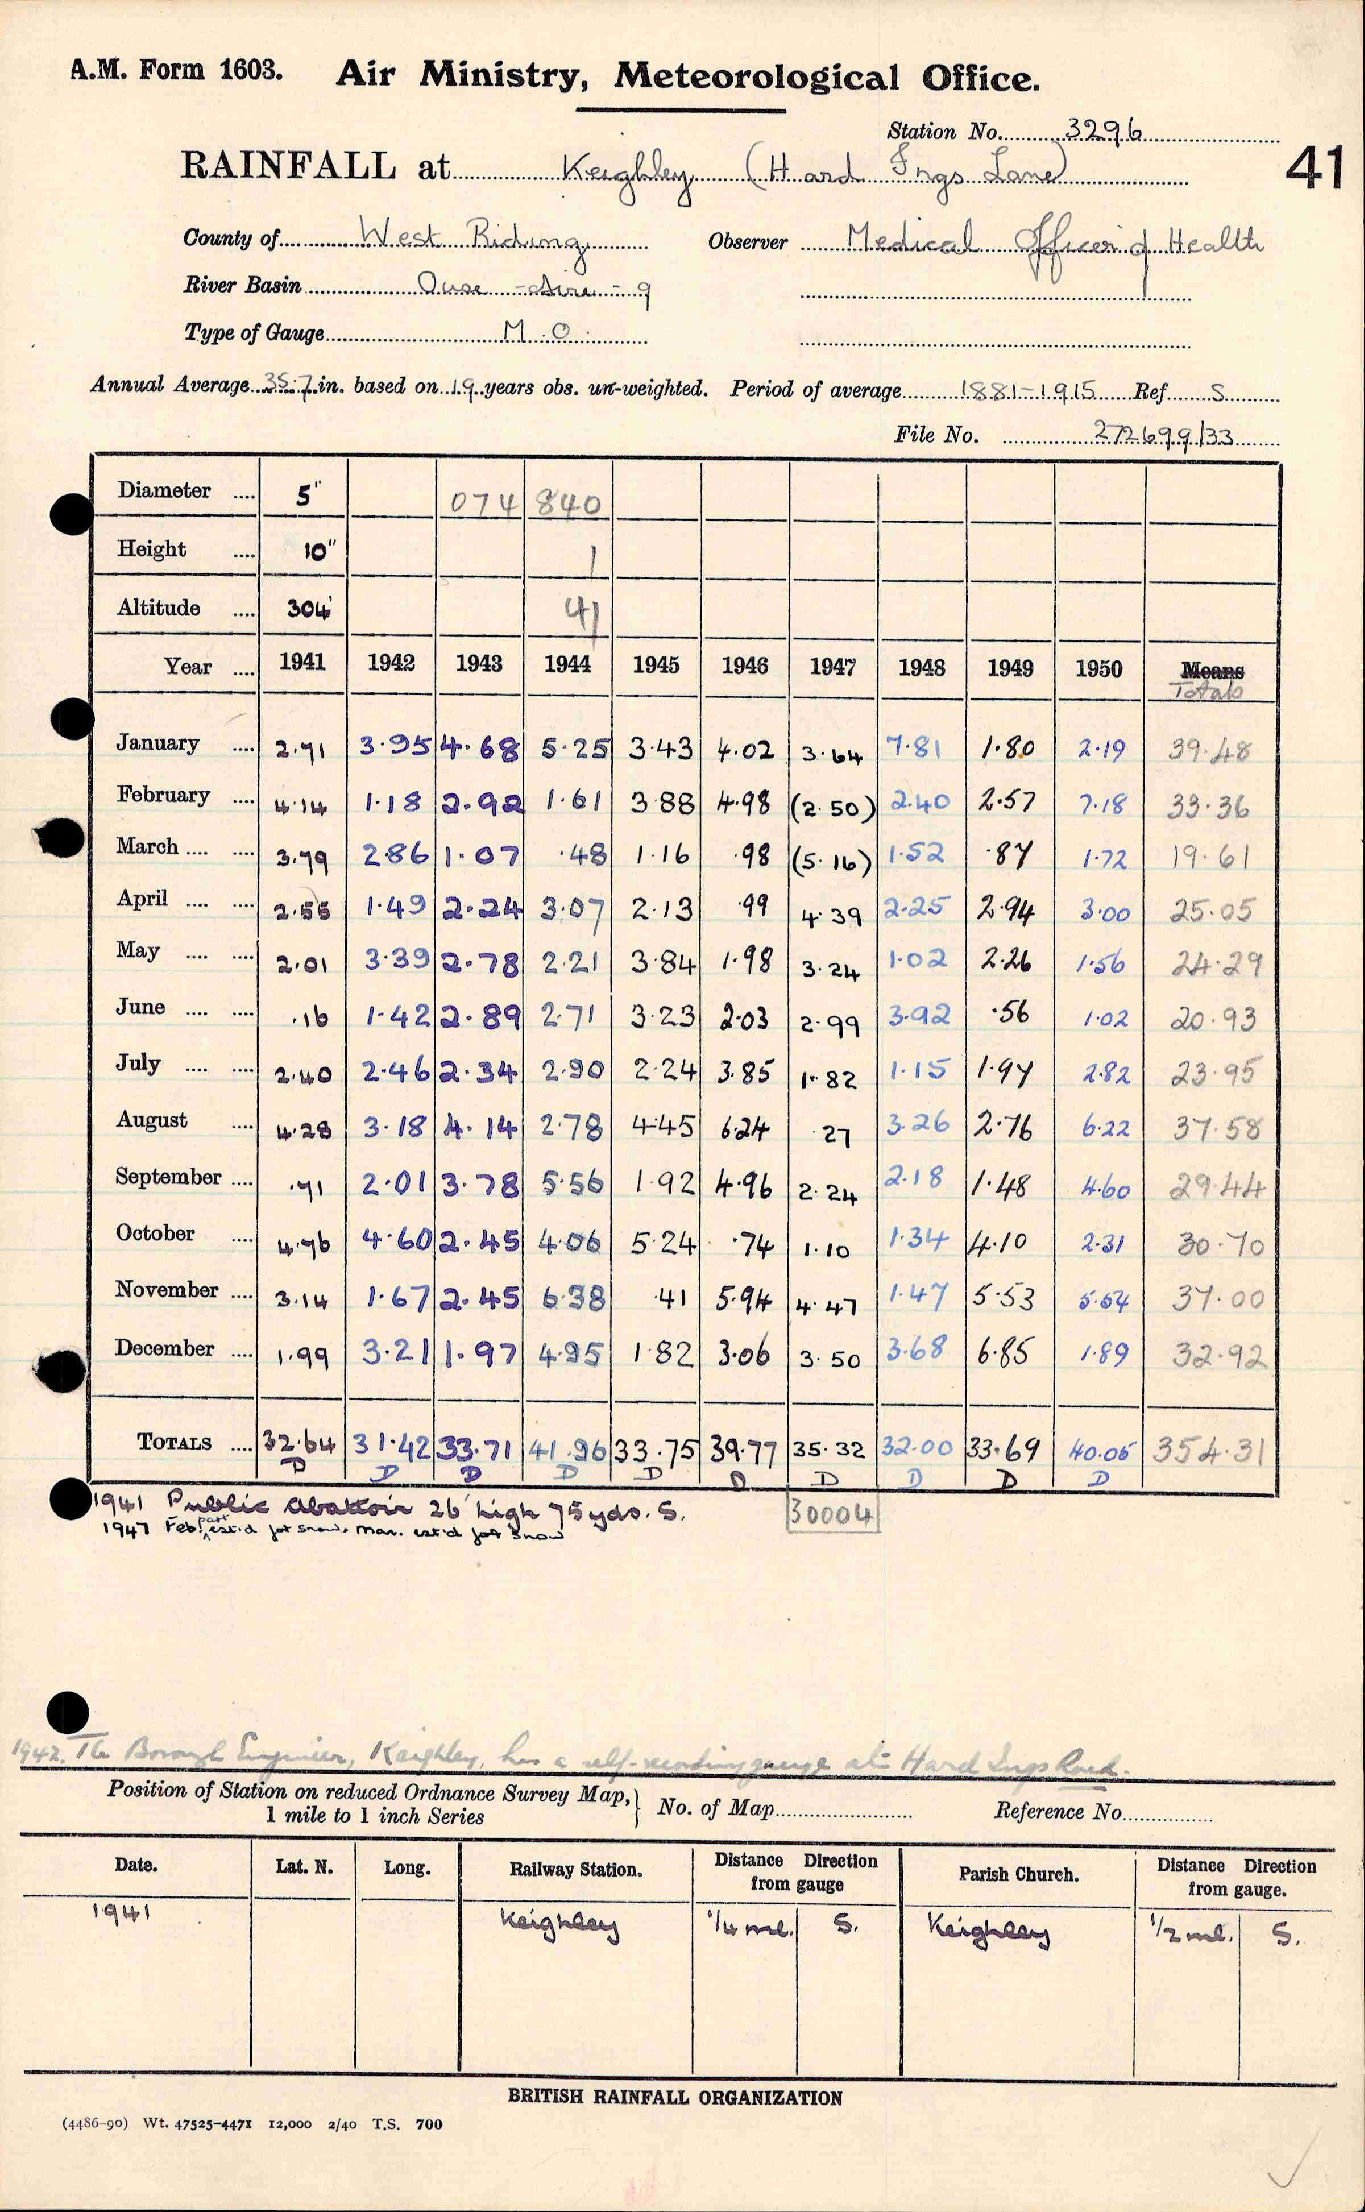 A.M. Form 1603. Air Ministry, Meteorological Office.
Station No. 3296
RAINFALL at Keighley (Hard Ings Lane) 41
County of West Riding Observer Medical Officer of Health
River Basin Ouse - Aire - 9
Type of Gauge M.O.
Annual Average 35.7 in. based on 19 years obs. un-weighted. Period of average 1881-1915 Ref. S
File No. 272699/33
Diameter 5" 074 840
Height 10" 1
Altitude 304' 41
Year 1941 1942 1943 1944 1945 1946 1947 1948 1949 1950 Means
Totals
January 2.71 3.95 4.68 5.25 3.43 4.02 3.64 7.81 1.80 2.19 39.48
February 4.14 1.18 2.92 1.61 3.88 4.98 (2.50) 2.40 2.57 7.18 33.36
March 3.79 2.86 1.07 .48 1.16 .98 (5.16) 1.52 .87 1.72 19.61
April 2.55 1.49 2.24 3.07 2.13 .99 4.39 2.25 2.94 3.00 25.05
May 2.01 3.39 2.78 2.21 3.84 1.98 3.24 1.02 2.26 1.56 24.29
June .16 1.42 2.89 2.71 3.23 2.03 2.99 3.92 .56 1.02 20.93
July 2.40 2.46 2.34 2.90 2.24 3.85 1.82 1.15 1.97 2.82 23.95
August 4.28 3.18 4.14 2.78 4.45 6.24 .27 3.26 2.76 6.22 37.58
September .71 2.01 3.78 5.56 1.92 4.96 2.24 2.18 1.48 4.60 29.44
October 4.76 4.60 2.45 4.06 5.24 .74 1.10 1.34 4.10 2.31 30.70
November 3.14 1.67 2.45 6.38 .41 5.94 4.47 1.47 5.53 5.54 37.00
December 1.99 3.21 1.97 4.95 1.82 3.06 3.50 3.68 6.85 1.89 32.92
TOTALS 32.64 31.42 33.71 41.96 33.75 39.77 35.32 32.00 33.69 40.05 354.31
D D D D D D D D D D
1941 Public abattoir 26' high 75 yds. S. 30004
1947 Feb. part est'd for snow. Mar. est'd for snow
1942. The Borough Engineer, Keighley, has a self-recording gauge at Hard Ings Road.
Position of Station on reduced Ordnance Survey Map, No. of Map Reference No.
1 mile to 1 inch Series
Date. Lat. N. Long. Railway Station. Distance Direction from gauge Parish Church. Distance Direction from gauge.
1941 Keighley 1/4 ml. S. Keighley 1/2 ml. S.
BRITISH RAINFALL ORGANIZATION
(4486-90) Wt. 47525-4471 12,000 2/40 T.S. 700